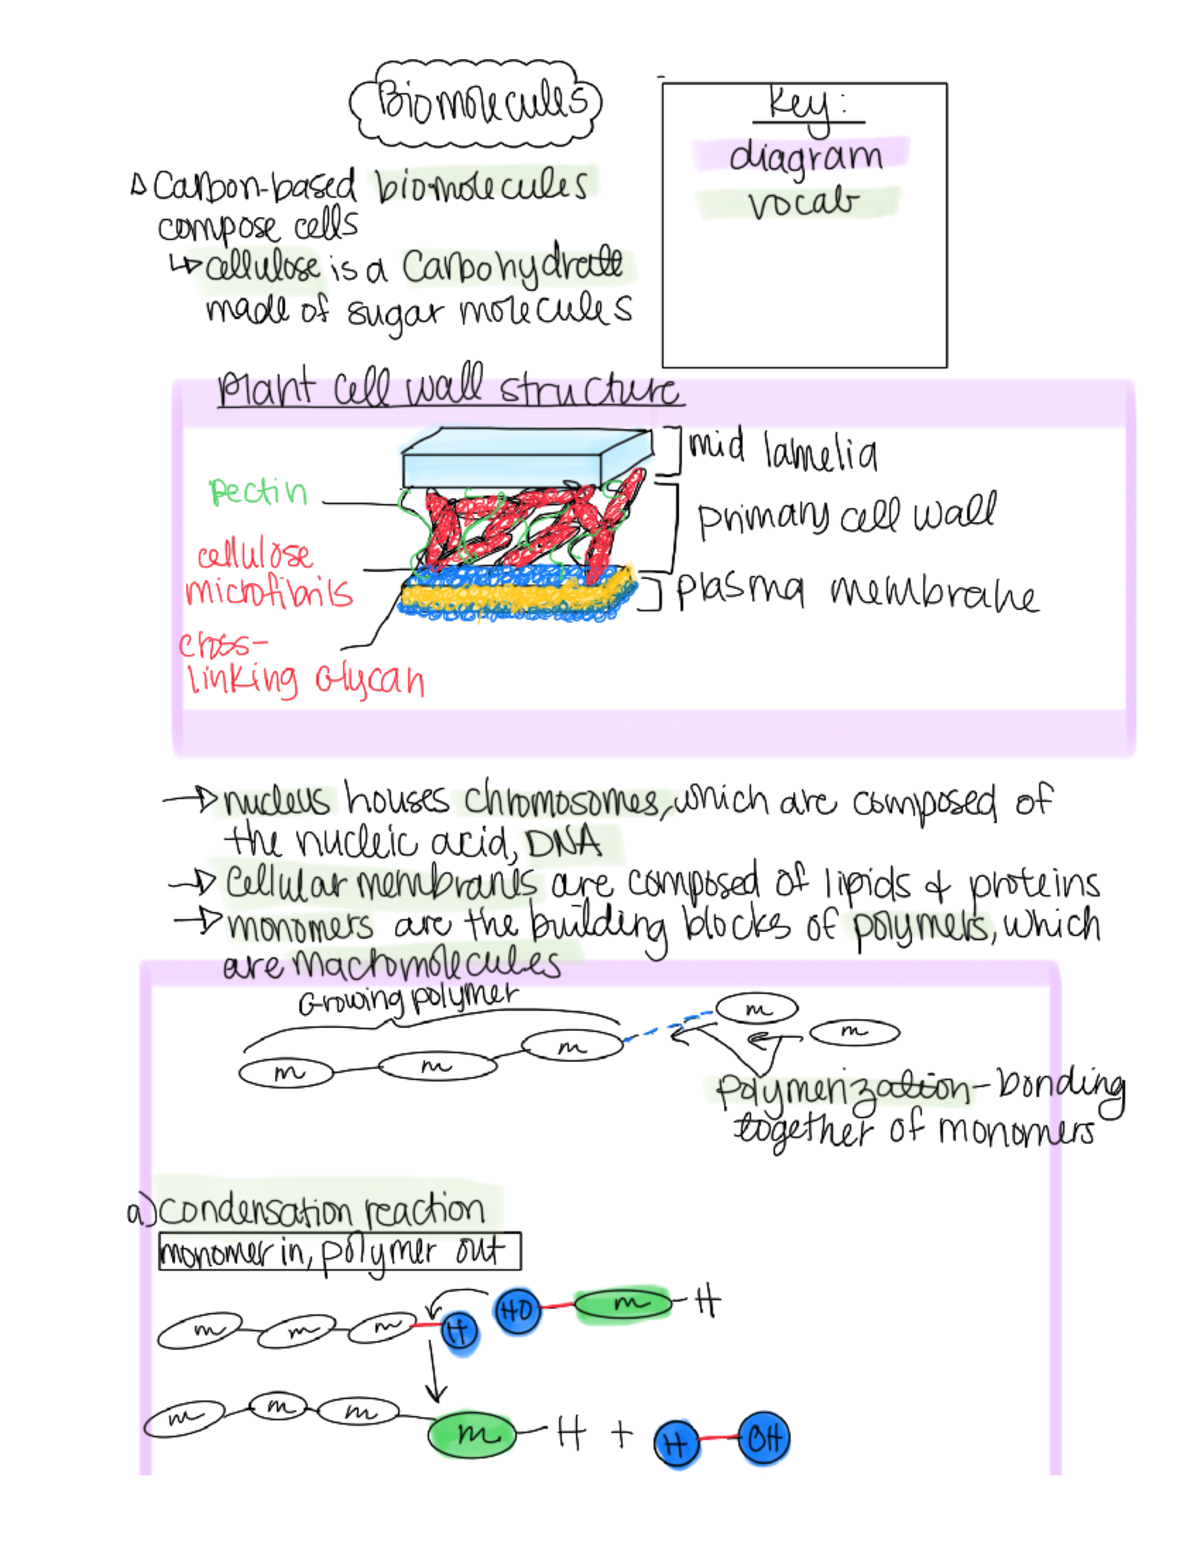 Biomolecules
Key:
diagram
vocab
Carbon-based biomolecules
compose cells
↳ cellulose is a carbohydrate
made of sugar molecules
Plant cell wall structure
mid lamelia
Pectin
primary cell wall
cellulose
microfibrils
plasma membrane
cross-
linking Glycan
→ nucleus houses chromosomes, which are composed of
the nucleic acid, DNA
→ Cellular membranes are composed of lipids & proteins
→ monomers are the building blocks of polymers, which
are macromolecules
Growing polymer
m
m
m m m
polymerization - bonding
together of monomers
a) condensation reaction
monomer in, polymer out
HO m - H
m m m H
m m m
m - H + H OH